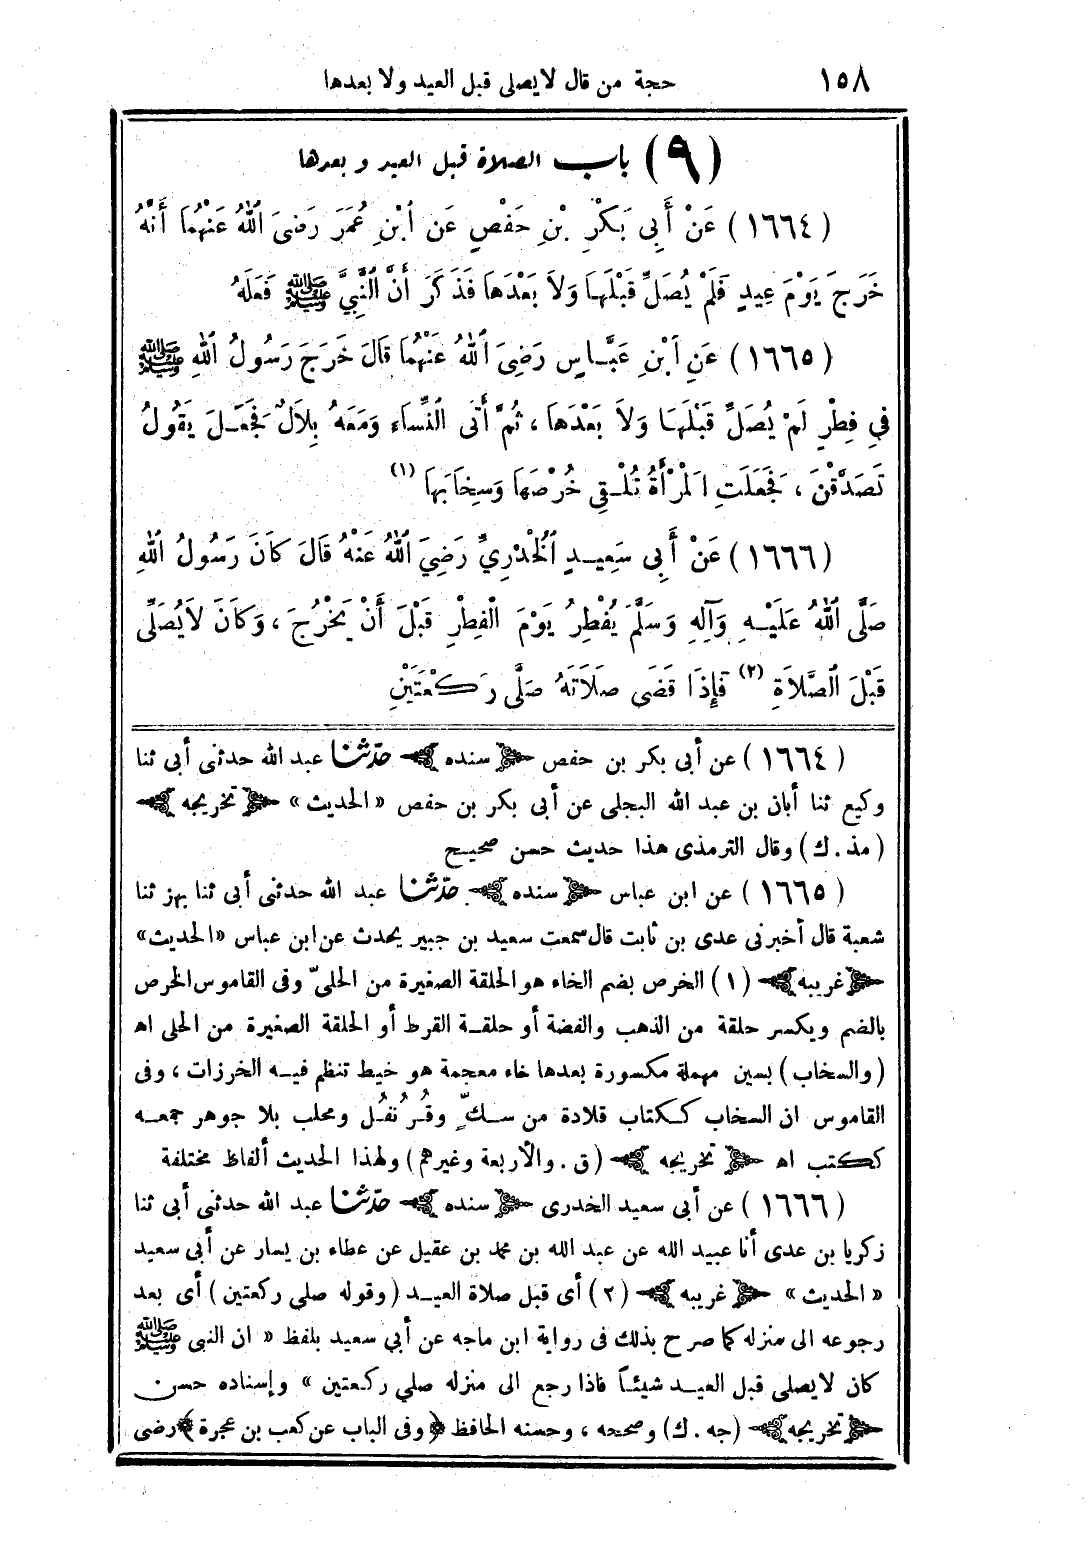 ١٥٨ حجة من قال لايصلى قبل العيد ولا بعدها
(٩) باب الصلاة قبل العيد وبعدها
(١٦٦٤) عَنْ أَبِى بَكْرِ بْنِ حَفْصٍ عَنِ ابْنِ عُمَرَ رَضِىَ اللهُ عَنْهُمَا أَنَّهُ
خَرَجَ يَوْمَ عِيدٍ فَلَمْ يُصَلِّ قَبْلَهَا وَلاَ بَعْدَهَا فَذَكَرَ أَنَّ النَّبِيَّ ﷺ فَعَلَهُ
(١٦٦٥) عَنِ ابْنِ عَبَّاسٍ رَضِىَ اللهُ عَنْهُمَا قَالَ خَرَجَ رَسُولُ اللهِ ﷺ
فِي فِطْرٍ لَمْ يُصَلِّ قَبْلَهَا وَلاَ بَعْدَهَا، ثُمَّ أَتَى النِّسَاءَ وَمَعَهُ بِلاَلٌ فَجَعَلَ يَقُولُ
تَصَدَّقْنَ، فَجَعَلَتِ الْمَرْأَةُ تُلْقِى خُرْصَهَا وَسِخَابَهَا (١)
(١٦٦٦) عَنْ أَبِى سَعِيدٍ الْخُدْرِيِّ رَضِيَ اللهُ عَنْهُ قَالَ كَانَ رَسُولُ اللهِ
صَلَّى اللهُ عَلَيْهِ وَآلِهِ وَسَلَّمَ يُفْطِرُ يَوْمَ الْفِطْرِ قَبْلَ أَنْ يَخْرُجَ، وَكَانَ لاَيُصَلِّى
قَبْلَ الصَّلاَةِ (٢) فَإِذَا قَضَى صَلاَتَهُ صَلَّى رَكْعَتَيْنِ
(١٦٦٤) عن أبى بكر بن حفص ﴿سنده﴾ حدّثنا عبد الله حدثنى أبى ثنا
وكيع ثنا أبان بن عبد الله البجلى عن أبى بكر بن حفص «الحديث» ﴿تخريجه﴾
(مذ. ك) وقال الترمذى هذا حديث حسن صحيح
(١٦٦٥) عن ابن عباس ﴿سنده﴾ حدّثنا عبد الله حدثنى أبى ثنا بهز ثنا
شعبة قال أخبرنى عدى بن ثابت قال سمعت سعيد بن جبير يحدث عن ابن عباس «الحديث»
﴿غريبه﴾ (١) الخرص بضم الخاء هو الحلقة الصغيرة من الحلىّ وفى القاموس الخرص
بالضم ويكسر حلقة من الذهب والفضة أو حلقة القرط أو الحلقة الصغيرة من الحلى اهـ
(والسخاب) بسين مهملة مكسورة بعدها خاء معجمة هو خيط تنظم فيه الخرزات، وفى
القاموس ان السخاب ككتاب قلادة من سكّ وقُرُنفُل ومحلب بلا جوهر جمعه
ككتب اهـ ﴿تخريجه﴾ (ق. والأربعة وغيرهم) ولهذا الحديث ألفاظ مختلفة
(١٦٦٦) عن أبى سعيد الخدرى ﴿سنده﴾ حدّثنا عبد الله حدثنى أبى ثنا
زكريا بن عدى أنا عبيد الله عن عبد الله بن محمد بن عقيل عن عطاء بن يسار عن أبى سعيد
«الحديث» ﴿غريبه﴾ (٢) أى قبل صلاة العيد (وقوله صلى ركعتين) أى بعد
رجوعه الى منزله كما صرح بذلك فى رواية ابن ماجه عن أبي سعيد بلفظ « ان النبى ﷺ
كان لايصلى قبل العيد شيئاً فاذا رجع الى منزله صلي ركعتين» وإسناده حسن
﴿تخريجه﴾ (جه. ك) وصححه، وحسنه الحافظ ﴿وفى الباب عن كعب بن عجرة﴾ رضى